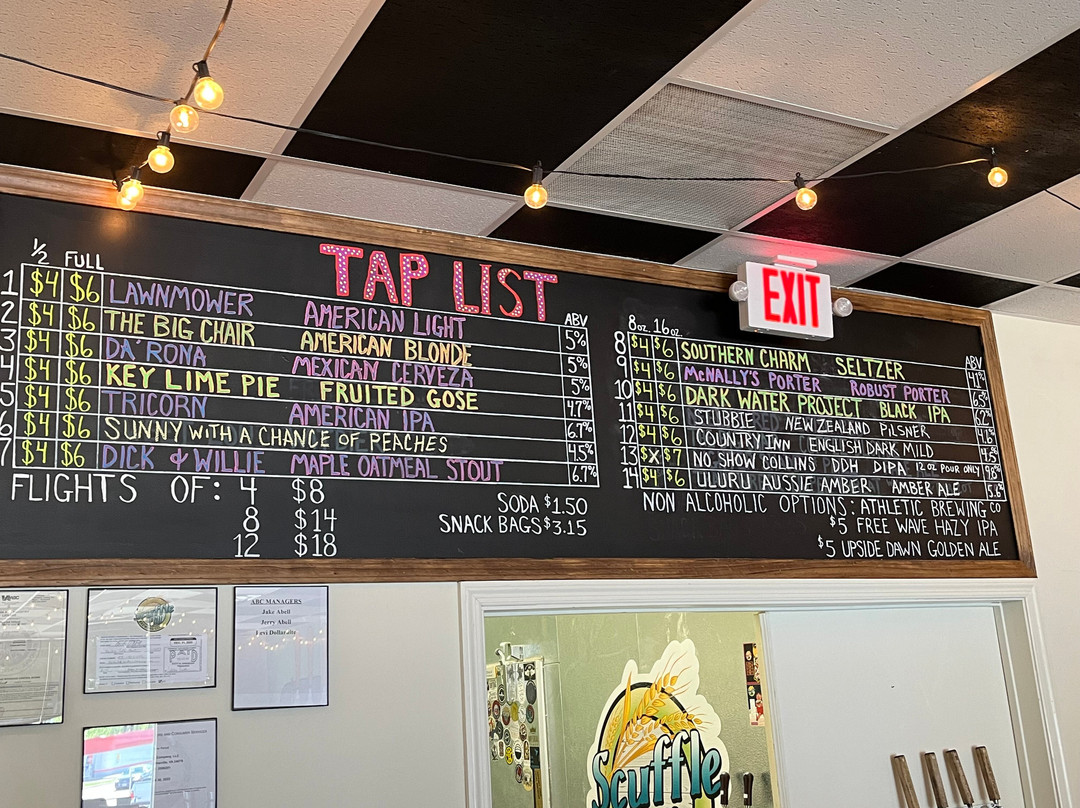 TAP LIST
½ FULL
ABV
1 $4 $6 LAWNMOWER AMERICAN LIGHT 5%
2 $4 $6 THE BIG CHAIR AMERICAN BLONDE 5%
3 $4 $6 DA'RONA MEXICAN CERVEZA 5%
4 $4 $6 KEY LIME PIE FRUITED GOSE 4.7%
5 $4 $6 TRICORN AMERICAN IPA 6.7%
6 $4 $6 SUNNY WITH A CHANCE OF PEACHES 4.5%
7 $4 $6 DICK & WILLIE MAPLE OATMEAL STOUT 6.7%
FLIGHTS OF: 4 $8
8 $14
12 $18
SODA $1.50
SNACK BAGS $3.15
8oz. 16oz.
ABV
8 $4 $6 SOUTHERN CHARM SELTZER 4.1%
9 $4 $6 McNALLY'S PORTER ROBUST PORTER 6.5%
10 $4 $6 DARK WATER PROJECT BLACK IPA
11 $4 $6 STUBBIE NEW ZEALAND PILSNER 4.6%
12 $4 $6 COUNTRY INN ENGLISH DARK MILD 4.5%
13 $X $7 NO SHOW COLLINS DDH DIPA 12 OZ POUR ONLY
14 $4 $6 ULURU AUSSIE AMBER AMBER ALE 5.6%
NON ALCOHOLIC OPTIONS: ATHLETIC BREWING CO
$5 FREE WAVE HAZY IPA
$5 UPSIDE DAWN GOLDEN ALE
EXIT
ABC MANAGERS
Jake Abell
Jerry Abell
Scuffle